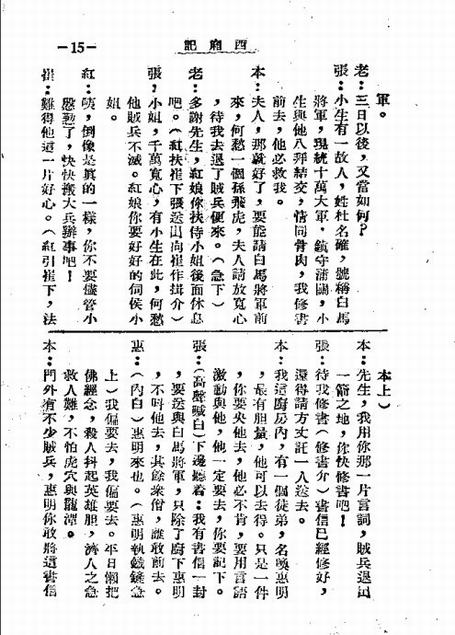 西廂記
-15-
軍。
老：三日以後，又當如何？
張：小生有一故人，姓杜名確，號稱白馬
將軍，現統十萬大軍，鎮守蒲關，小
生與他八拜結交，情同骨肉，我修書
前去，他必救我。
本：夫人，那就好了，要能請白馬將軍前
來，何愁一個孫飛虎，夫人請放寬心
，待我去退了賊兵便來。（急下）
老：多謝先生，紅娘你扶侍小姐後面休息
吧。（紅扶崔下張送出向崔作揖介）
張：小姐，千萬寬心，有小生在此，何愁
他賊兵不滅。紅娘你要好好的伺侯小
姐。
紅：咦，倒像是真的一樣，你不要儘管小
慇懃了，快快搬大兵辦事吧！
崔：難得他這一片好心。（紅引崔下，法
本上）
本：先生，我用你那一片言詞，賊兵退出
一箭之地，你快修書吧！
張：待我修書（修書介）書信已經修好，
還得請方丈託一人送去。
本：我這廚房內，有一個徒弟，名喚惠明
，最有胆量，他可以去得。只是一件
，你要央他去，他必不肯，要用言語
激動與他，他一定要去，你要記下。
張：（高聲喊白）下邊聽着：我有書信一封
，要送與白馬將軍，只除了廚下惠明
，不叫他去，其餘衆僧，誰敢前去。
惠：（內白）惠明來也。（惠明執鐵鏟急
上）我偏要去，我偏要去。平日懶把
佛經念，殺人抖起英雄胆，濟人之急
救人難，不怕虎穴與龍潭。
本：門外有不少賊兵，惠明你敢將這書信